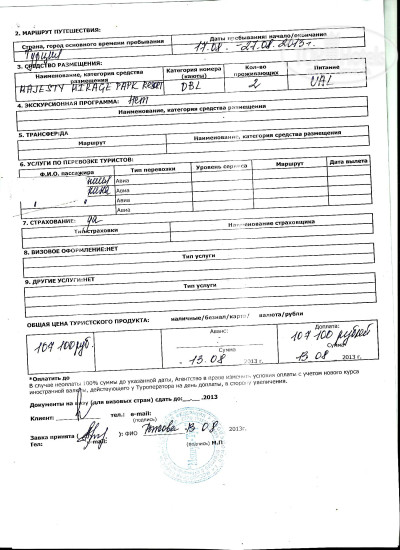 2. МАРШРУТ ПУТЕШЕСТВИЯ:
Страна, город основного времени пребывания
Даты пребывания: начало/окончание
Турция
17.08. - 27.08.2013г.
3. СРЕДСТВО РАЗМЕЩЕНИЯ:
Наименование, категория средства размещения
Категория номера (каюты)
Кол-во проживающих
Питание
MAJESTY MIRAGE PARK Resort
DBL
2
UAL
4. ЭКСКУРСИОННАЯ ПРОГРАММА: нет
Наименование, категория средства размещения
5. ТРАНСФЕР:ДА
Маршрут
Наименование, категория средства размещения
6. УСЛУГИ ПО ПЕРЕВОЗКЕ ТУРИСТОВ:
Ф.И.О. пассажира
Тип перевозки
Уровень сервиса
Маршрут
Дата вылета
Авиа
Авиа
Авиа
Авиа
7. СТРАХОВАНИЕ: да
Тип страховки
Наименование страховщика
8. ВИЗОВОЕ ОФОРМЛЕНИЕ:НЕТ
Тип услуги
9. ДРУГИЕ УСЛУГИ:НЕТ
Тип услуги
ОБЩАЯ ЦЕНА ТУРИСТСКОГО ПРОДУКТА: наличные/безнал/карта/ валюта/рубли
107 100 руб.
Аванс:
Сумма
13.08 2013 г.
Доплата:
107 100 рублей
Сумма
13 08 2013 г.
*Оплатить до
В случае неоплаты 100% суммы до указанной даты, Агентство в праве изменить условия оплаты с учетом нового курса
иностранной валюты, действующего у Туроператора на день доплаты, в сторону увеличения.
Документы на визу (для визовых стран) сдать до: .2013
Клиент: тел.: e-mail:
(подпись)
Заявка принята ( ): ФИО 13 08 2013г.
Тел: mail: (подпись) М.П.